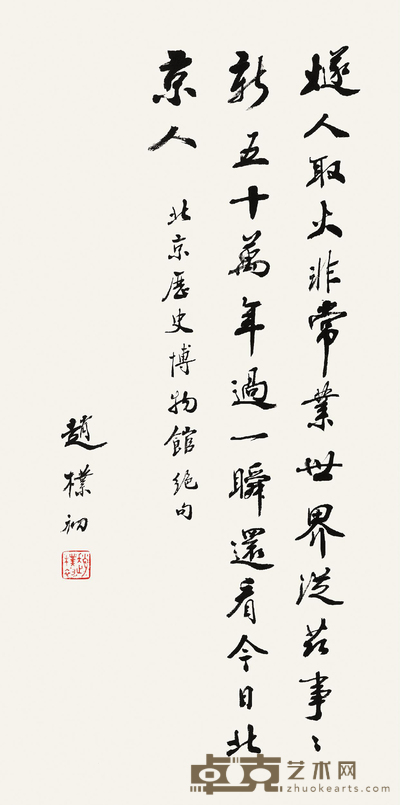 燧人取火非常業世界從茲事〻
新五十萬年過一瞬還看今日北
京人
北京歷史博物館絕句
趙樸初
趙樸初
卓克艺术网
zhuokearts.com